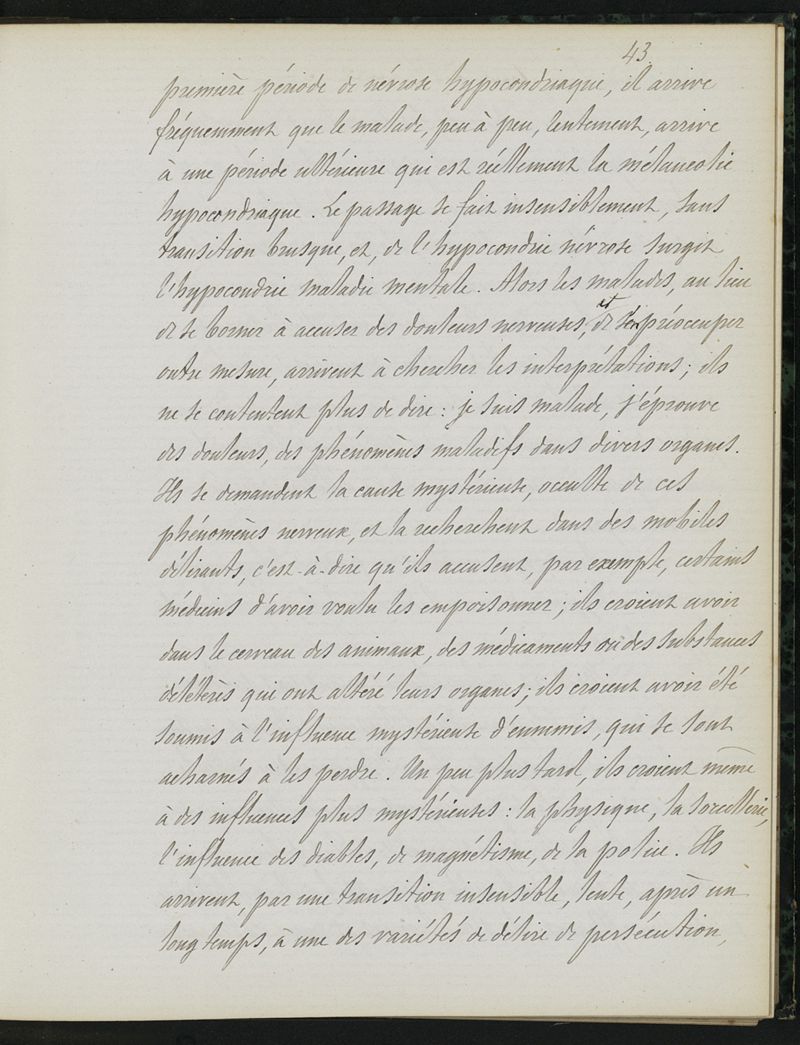 43
première période de névrose hypocondriaque, il arrive
fréquemment que le malade, peu à peu, lentement, arrive
à une période ultérieure qui est réellement la mélancolie
hypocondriaque. Le passage se fait insensiblement, sans
transition brusque, et, de l'hypocondrie névrose surgit
l'hypocondrie maladie mentale. Alors les malades, au lieu
de se borner à accuser des douleurs nerveuses, et de s'en préoccuper
outre mesure, arrivent à chercher les interprétations; ils
ne se contentent plus de dire: je suis malade, j'éprouve
des douleurs, des phénomènes maladifs dans divers organes.
Ils se demandent la cause mystérieuse, occulte de ces
phénomènes nerveux, et la recherchent dans des mobiles
délirants, c'est-à-dire qu'ils accusent, par exemple, certains
médecins d'avoir voulu les empoisonner; ils croient avoir
dans le cerveau des animaux, des médicaments ou des substances
délétères qui ont altéré leurs organes; ils croient avoir été
soumis à l'influence mystérieuse d'ennemis, qui se sont
acharnés à les perdre. Un peu plus tard, ils croient même
à des influences plus mystérieuses: la physique, la sorcellerie,
l'influence des diables, de magnétisme, de la police. Ils
arrivent, par une transition insensible, lente, après un
long temps, à une des variétés de délire de persécution,